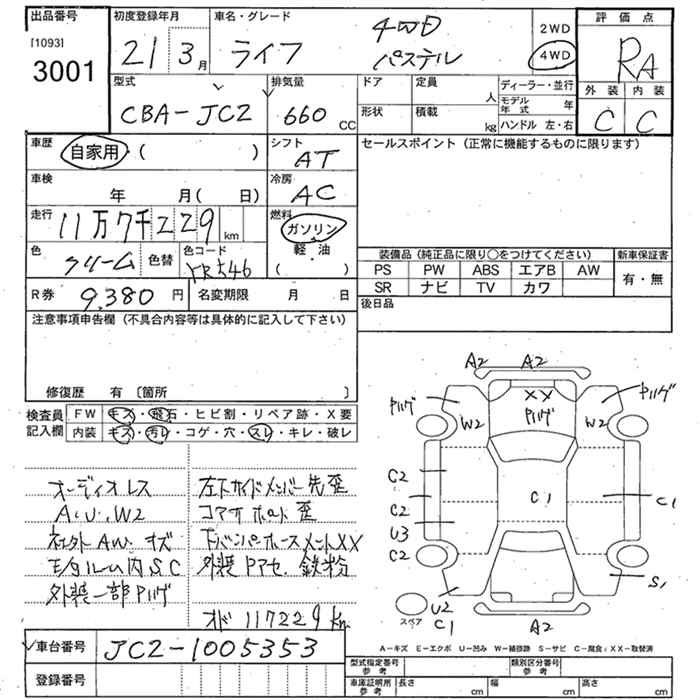 出品番号 初度登録年月 車名・グレード 評価点
[1093] 3001
21 3月 ライフ 4WD パステル
2WD
4WD
RA
型式 排気量 ドア 定員 人 ディーラー・並行 外装 内装
CBA-JC2 660 CC 形状 積載 kg モデル年式 年 C C
ハンドル 左・右
車歴 自家用 ( ) シフト AT セールスポイント (正常に機能するものに限ります)
車検 年 月( 日) 冷房 AC
走行 11万7千229 km 燃料 ガソリン
軽・油
( )
色 クリーム 色替 色コード YR546
装備品 (純正品に限り○をつけてください) 新車保証書
PS PW ABS エアB AW 有・無
SR ナビ TV カワ
R券 9,380円 名変期限 月 日 後日品
注意事項申告欄 (不具合内容等は具体的に記入して下さい)
修復歴 有 〔箇所 〕
検査員記入欄 FW キズ・飛石・ヒビ割・リペア跡・X要
内装 キズ・汚レ・コゲ・穴・スレ・キレ・破レ
オーディオレス 左下サイドメンバー先歪
A.U.W2 コアサポート歪
社外AW キズ XX
モタルーム内S.C 外装Pアセ. 鉄粉
外装一部Pハゲ
オド 117229km
A2 A2
Pハゲ XX Pハゲ
W2 Pハゲ W2
C2 C1 C1
C2
U3
C2
S1
U2
C1 A2
スペア
A-キズ E-エクボ U-凹み W-補修跡 S-サビ C-腐食:XX-取替済
車台番号 JC2-1005353
登録番号
型式指定番号 参考 類別区分番号 参考
車庫証明用 参考 長さ cm 幅 cm 高さ cm